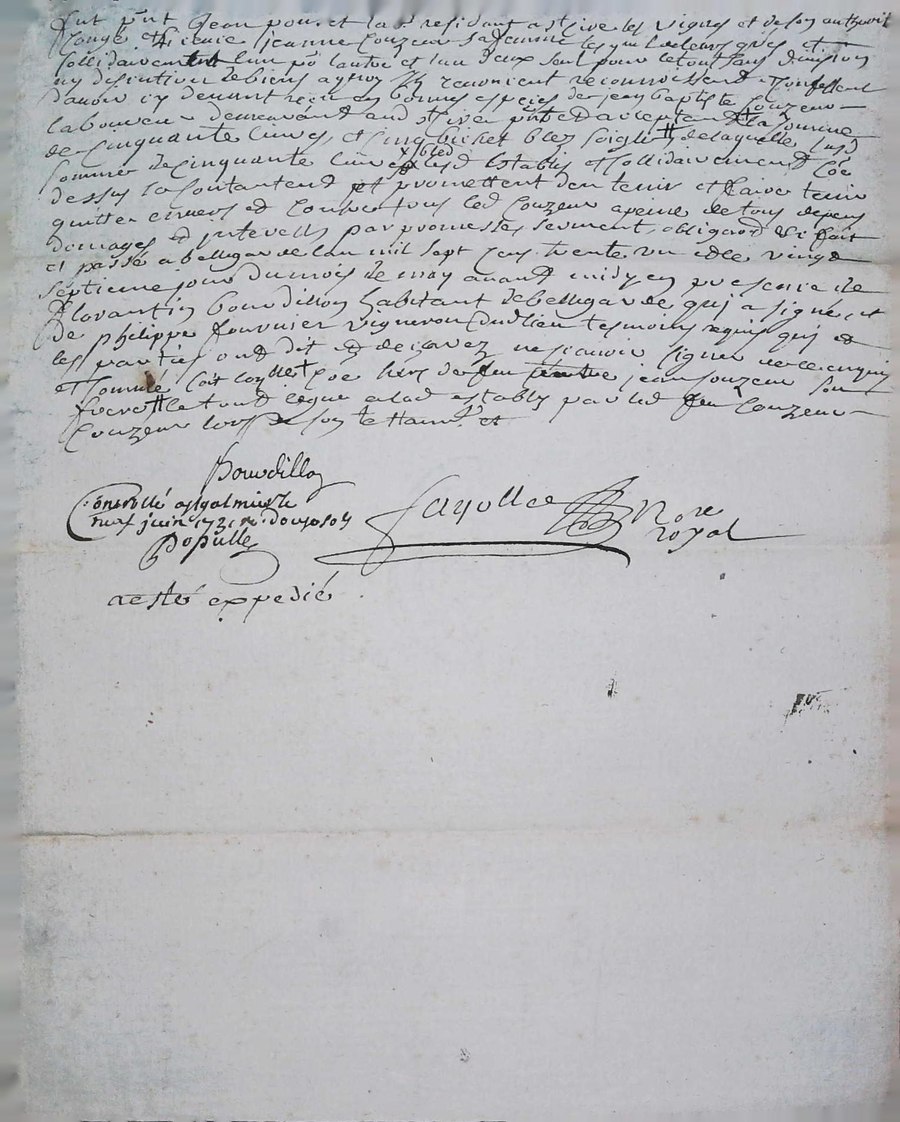 fut p̃nt Jean pouret lab^r residant a st Cire les vignes et de son authorité
Jeanne Couzeur sa femme lesquels de leurs grés et
sollidairement lun po^r lautre et lun deux seul pour le tout sans division
ny discution de biens ayns renoncent reconnoissent confessent
davoir cy devant reçu en bonnes especes de jean baptiste Couzeur
laboureur demeurant aud st Cire p̃nt et acceptant la somme
de Cinquante livres, et Cinq bichet bled seigle de laquelle susd
somme de Cinquante livres bled establis sollidairement Coê
dessus se Contantent et promettent den tenir et faire tenir
quitte envers et Contre tous led Couzeur a peine de tous depens
domages et interests par promesses serment, obligaôns &c fait
et passé a bellegarde lan mil sept cens trente un et le vingt
septieme jour du mois de may avant midy en presence de
florantin bourdillon habitant de bellegarde, qui a signé, et
de philippe fournier vigneron dud lieu tesmoins requis qui et
les parties ont dit et declaré ne sçavoir signer de ce enquis
et sommé soit jean Couzeur son
frere le tout legué a lad establis par led feu Couzeur
Couzeur lors de son testam^t et
Bourdillon
Controllé a st galmier le
neuf juin 1731 r. douze sols
Populle
Fayolle No^re
royal
a esté expedié